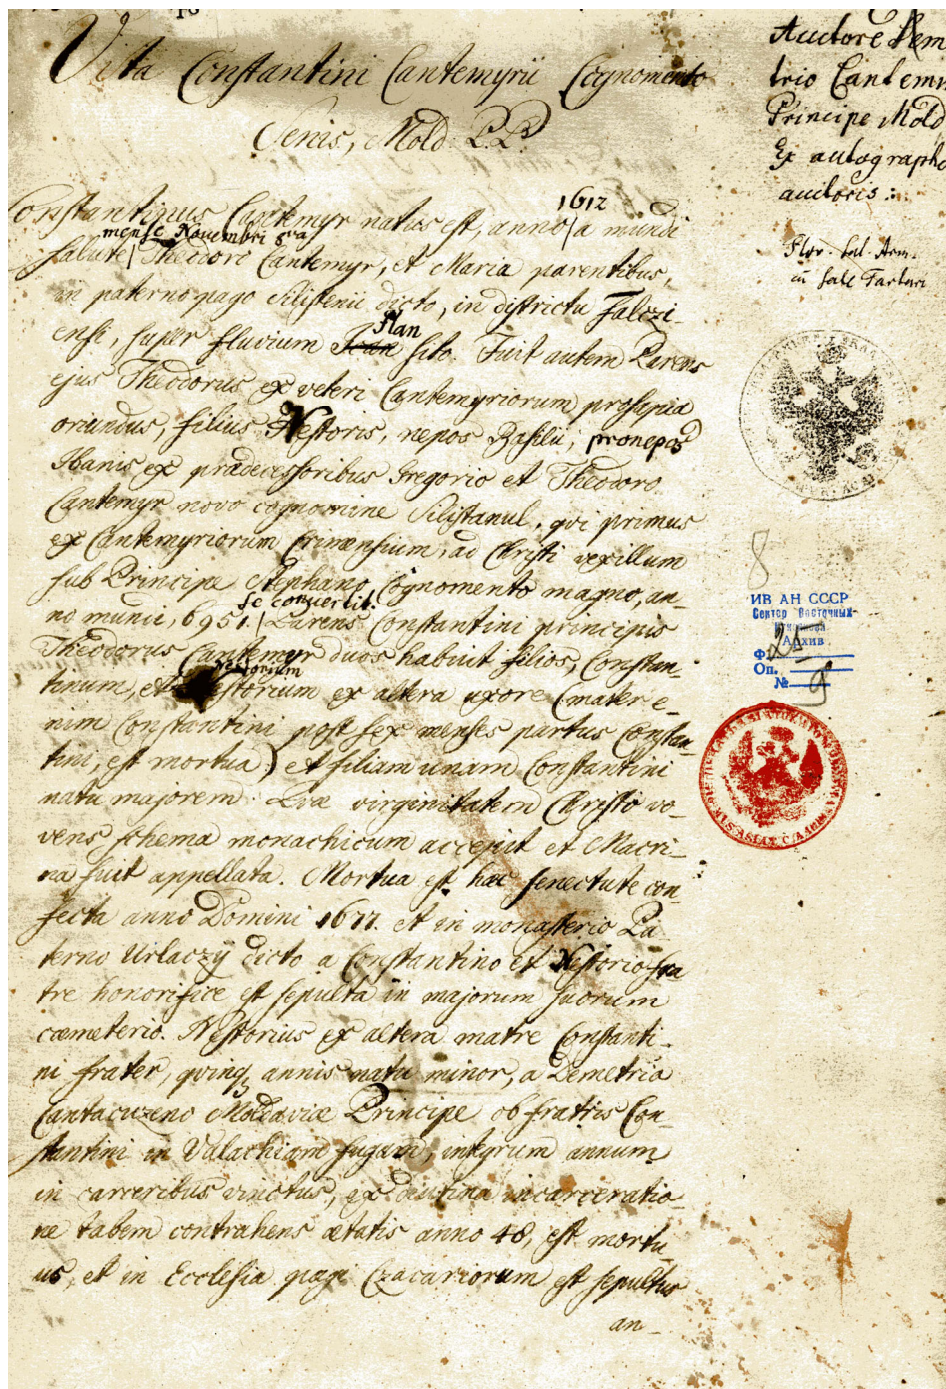 Vita Constantini Cantemyrii Cognomento
Senis, Mold. P.P.
Auctore Deme
trio Cantemi
Principe Mold
Ex autographo
auctoris:
Constantinus Cantemyr natus est, anno | a mundi
1612
salute | Theodoro Cantemyr, et Maria parentibus,
mense Novembri 8va
in paterno pago Silisteni dicto, in districtu Falczi-
ensi, super fluvium sito. Fuit autem Parens
Ilan
ejus Theodorus ex veteri Cantemyriorum prosapia
oriundus, filius Nestoris, nepos Basilii, pronepos
Ibanis ex prædecessoribus Gregorio et Theodoro
Cantemyr novo cognomine Silistanul, qvi primus
ex Cantemyriorum Crimensium, ad Christi vexillum
sub Principe Stephano Cognomento magno, an-
no mundi, 6951. | Parens Constantini principis
se convertit.
Theodorus Cantemyr duos habuit filios, Constan-
tinum, et Nestorium ex altera uxore (mater e-
Nestorium
nim Constantini post sex menses partus Constan-
tini, est mortua) et filiam unam Constantini
natu majorem. Qvæ virginitatem Christo vo-
vens schema monachicum accepit et Macri-
na fuit appellata. Mortua est hæc senectute con
fecta anno Domini 1677. et in monasterio Pa
terno Urlaczÿ dicto a Constantino et Nestorio fra
tre honorifice est sepulta in majorum suorum
cæmeterio. Nestorius ex altera matre Constanti-
ni frater, qvinq3 annis natu minor, a Demetrio
Cantacuzeno Moldaviæ Principe ob fratris Con-
stantini in Valachiam fugam, integrum annum
in carceribus vinctus, ex diutina incarceratio-
ne tabem contrahens ætatis anno 48, est mortu-
us, et in Ecclesia pagi Czacariorum est sepultus
an-
8
ИВ АН СССР
Сектор Восточных
Архив
Ф. 25
Оп.
№ 9